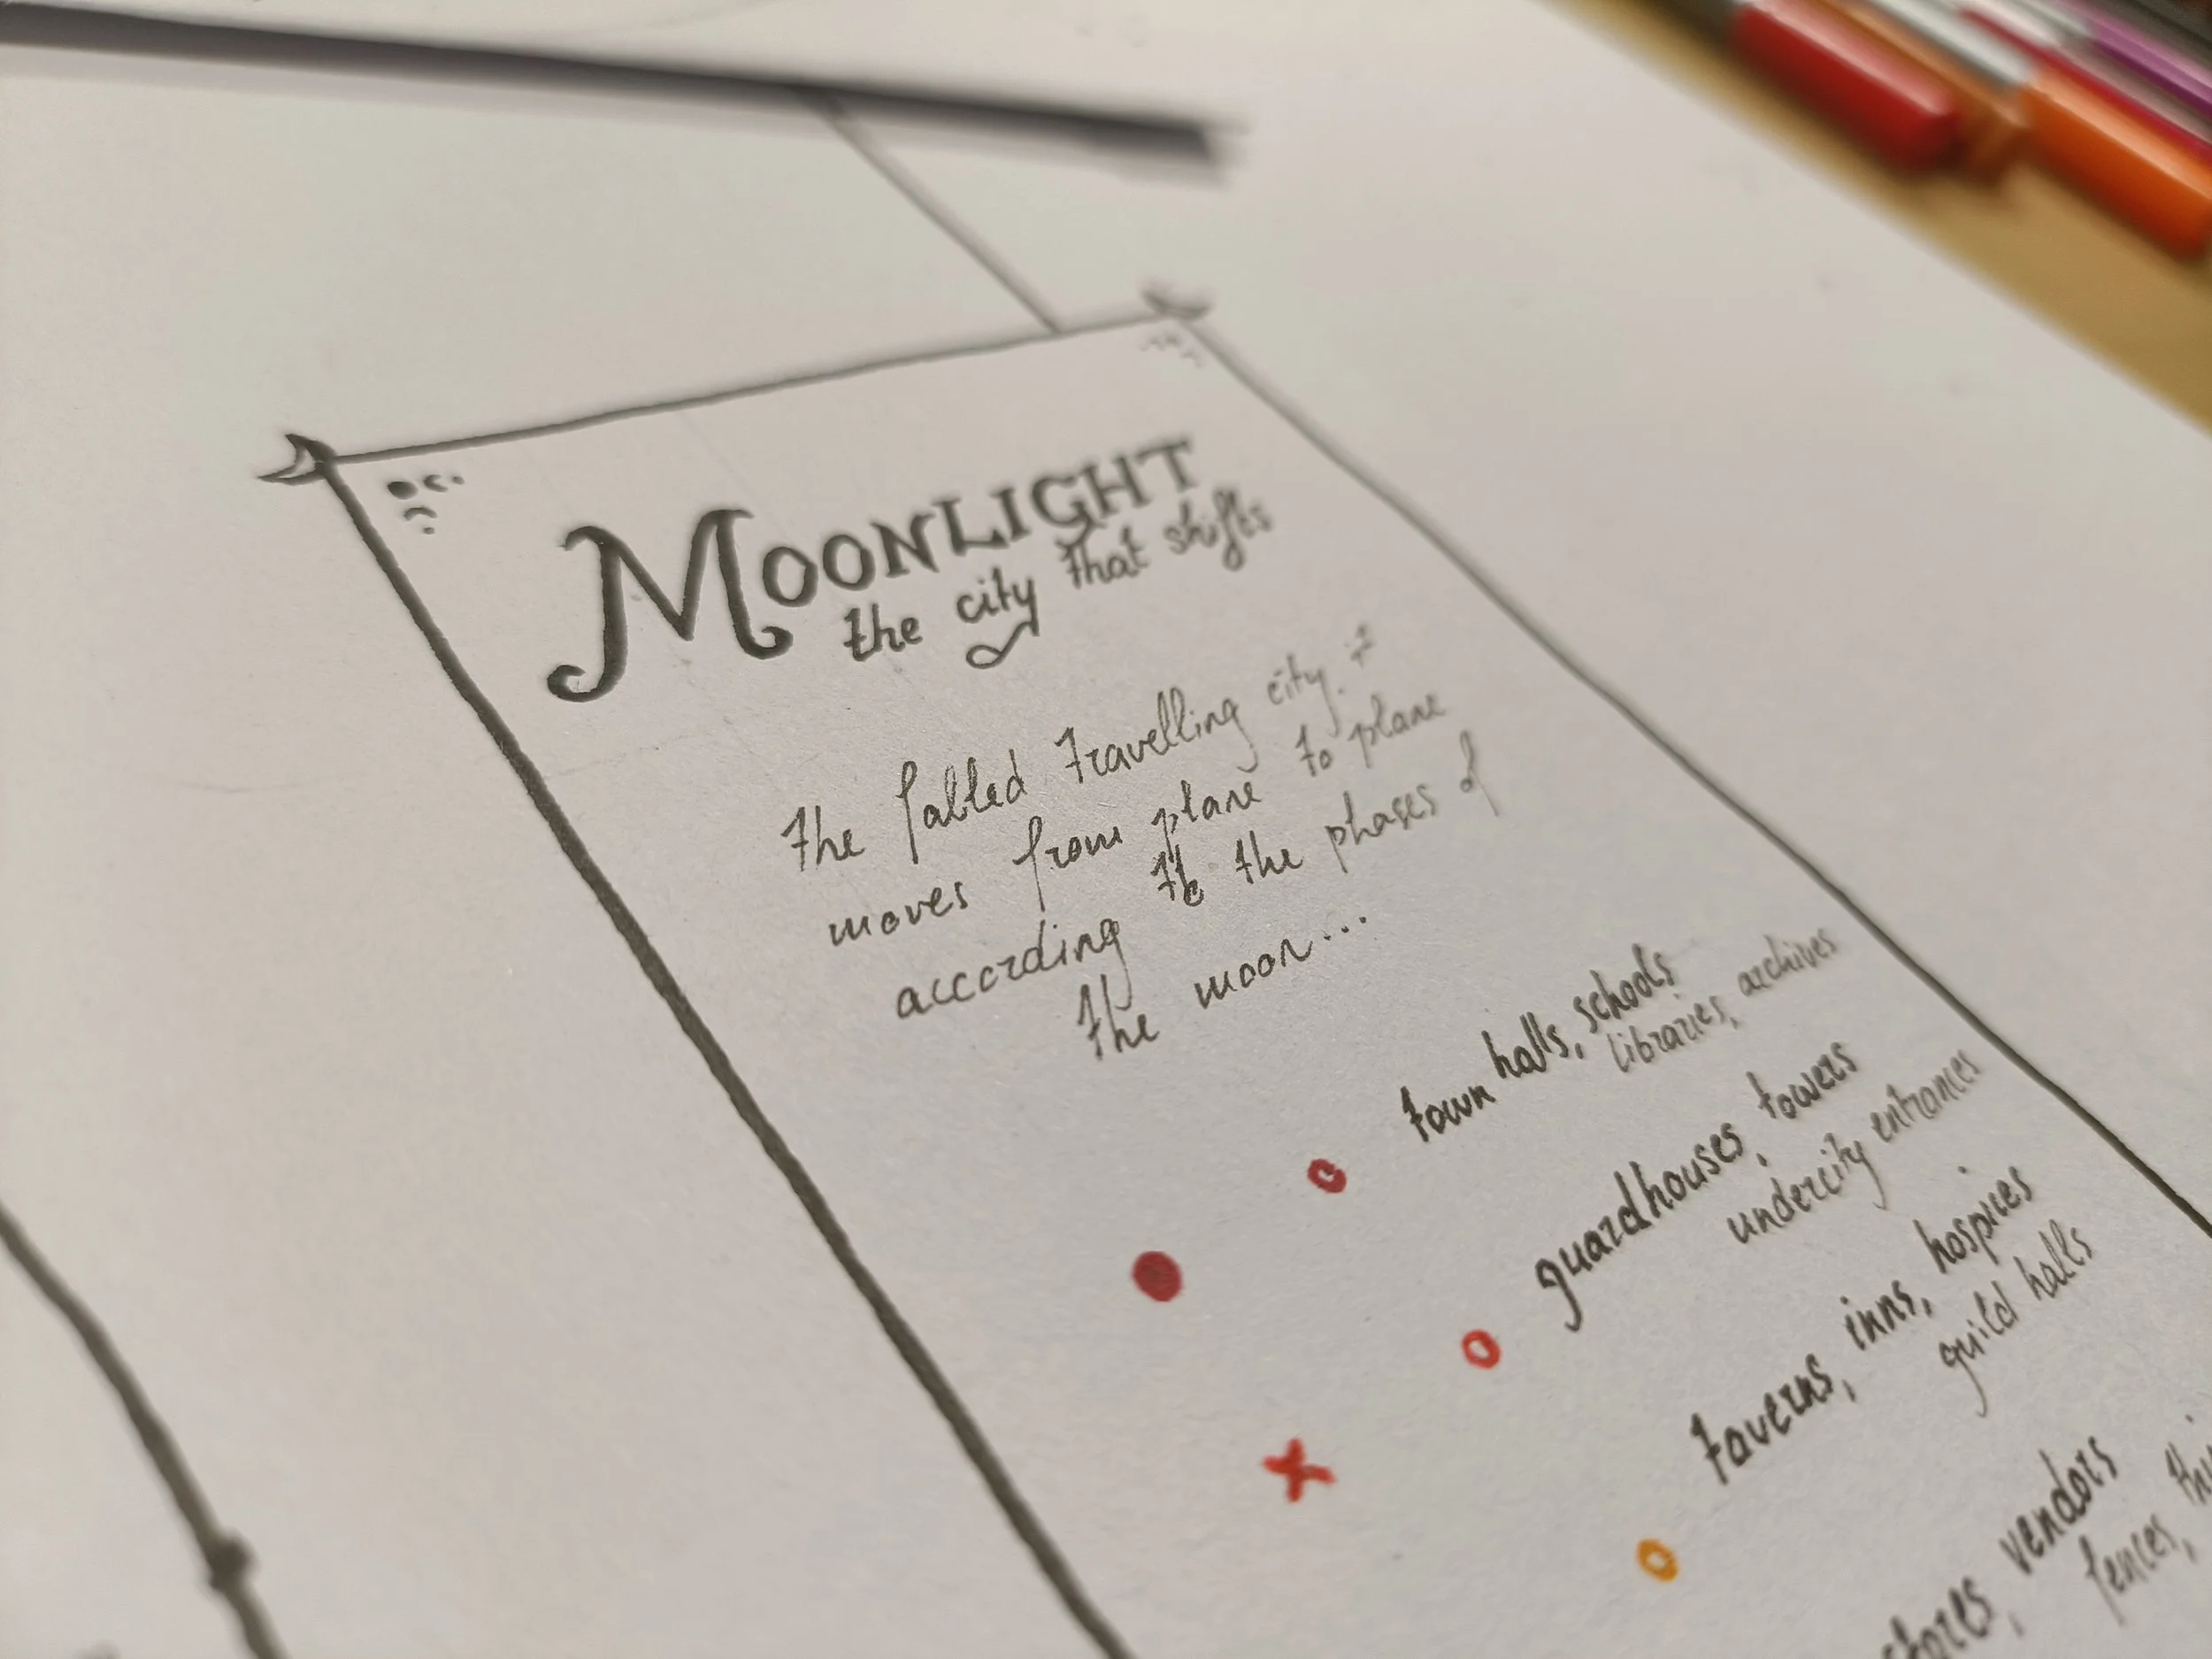 MOONLIGHT
the city that shifts
The fabled travelling city. It
moves from plane to plane
according to the phases of
the moon...
town halls, schools
libraries, archives
guardhouses, towers
undercity entrances
taverns, inns, hospices
guild halls
stores, vendors
fences,